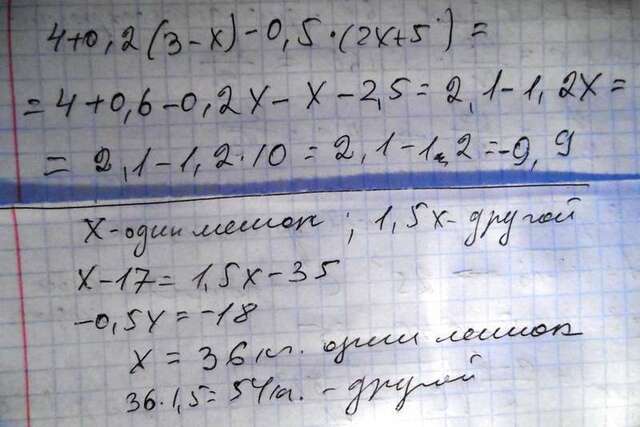 4+0,2(3-x)-0,5·(2x+5)=
=4+0,6-0,2x-x-2,5=2,1-1,2x=
=2,1-1,2·10=2,1-1,2=-0,9
x-один мешок; 1,5x-другой
x-17=1,5x-35
-0,5x=-18
x=36кг. один мешок
36·1,5=54кг.-другой